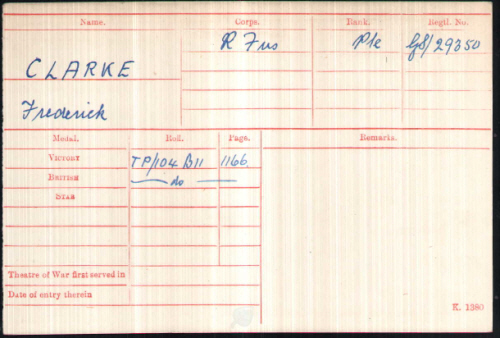 Name. Corps. Rank. Regtl. No.
R Fus Pte GS/29350
CLARKE
Frederick
Medal. Roll. Page. Remarks.
VICTORY TP/104 B11 1166
BRITISH — do —
STAR
Theatre of War first served in
Date of entry therein
K. 1380